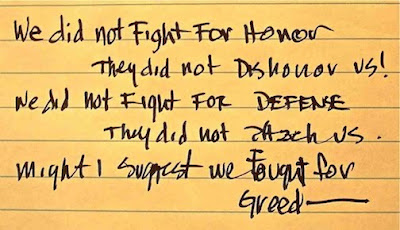 We did not Fight For Honor
They did not Dishonor us!
We did not Fight FOR DEFENSE
They did not attack us.
Might I Suggest we Fought for
Greed